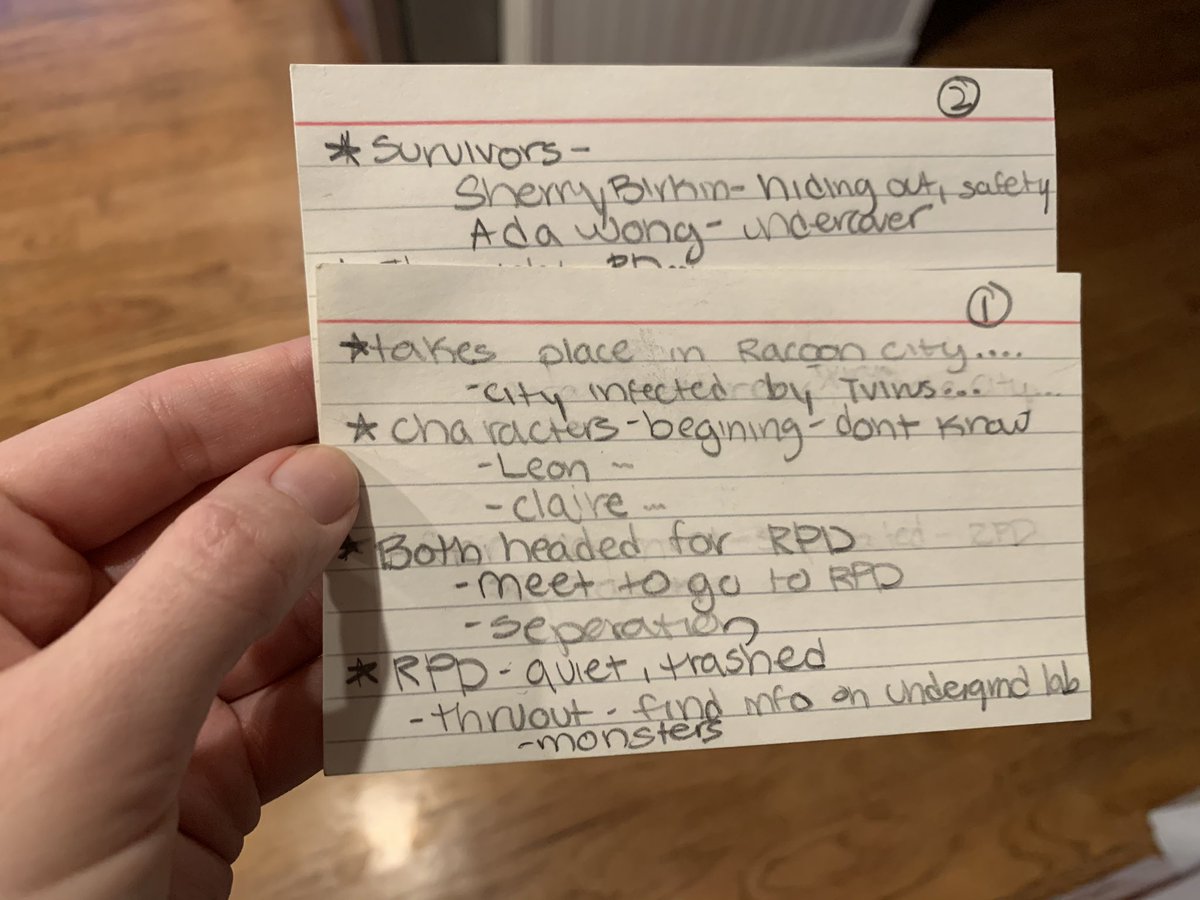 ②
* Survivors -
Sherry Birkin - hiding out, safety
Ada Wong - undercover
PD...
①
*takes place in Racoon city....
-city infected by Tvirus...
* characters - begining - dont know
-Leon ~
-claire ...
* Both headed for RPD
-meet to go to RPD
-seperation
* RPD - quiet, trashed
-thruout - find info on undergrnd lab
-monsters